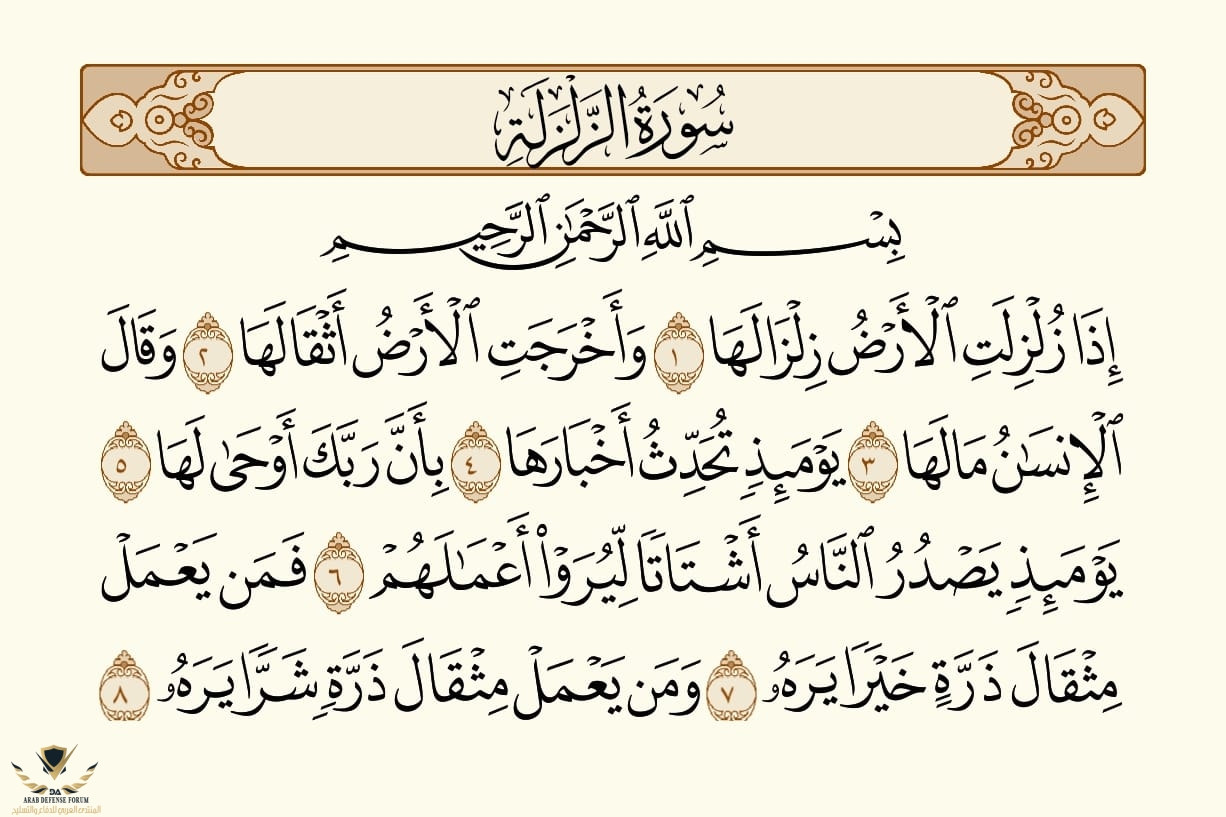 سُورَةُ الزَّلْزَلَةِ
بِسْمِ ٱللَّهِ ٱلرَّحْمَٰنِ ٱلرَّحِيمِ
إِذَا زُلْزِلَتِ ٱلْأَرْضُ زِلْزَالَهَا ١ وَأَخْرَجَتِ ٱلْأَرْضُ أَثْقَالَهَا ٢ وَقَالَ
ٱلْإِنسَٰنُ مَا لَهَا ٣ يَوْمَئِذٍ تُحَدِّثُ أَخْبَارَهَا ٤ بِأَنَّ رَبَّكَ أَوْحَىٰ لَهَا ٥
يَوْمَئِذٍ يَصْدُرُ ٱلنَّاسُ أَشْتَاتًا لِّيُرَوْا۟ أَعْمَٰلَهُمْ ٦ فَمَن يَعْمَلْ
مِثْقَالَ ذَرَّةٍ خَيْرًا يَرَهُۥ ٧ وَمَن يَعْمَلْ مِثْقَالَ ذَرَّةٍ شَرًّا يَرَهُۥ ٨
DA
ARAB DEFENSE FORUM
المنتدى العربي للدفاع والتسليح